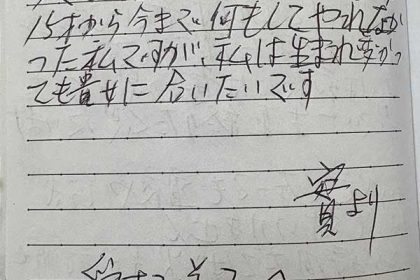 15才から今まで何もしてやれなか
った私ですが、私は生まれ変わっ
ても貴女に会いたいです
より